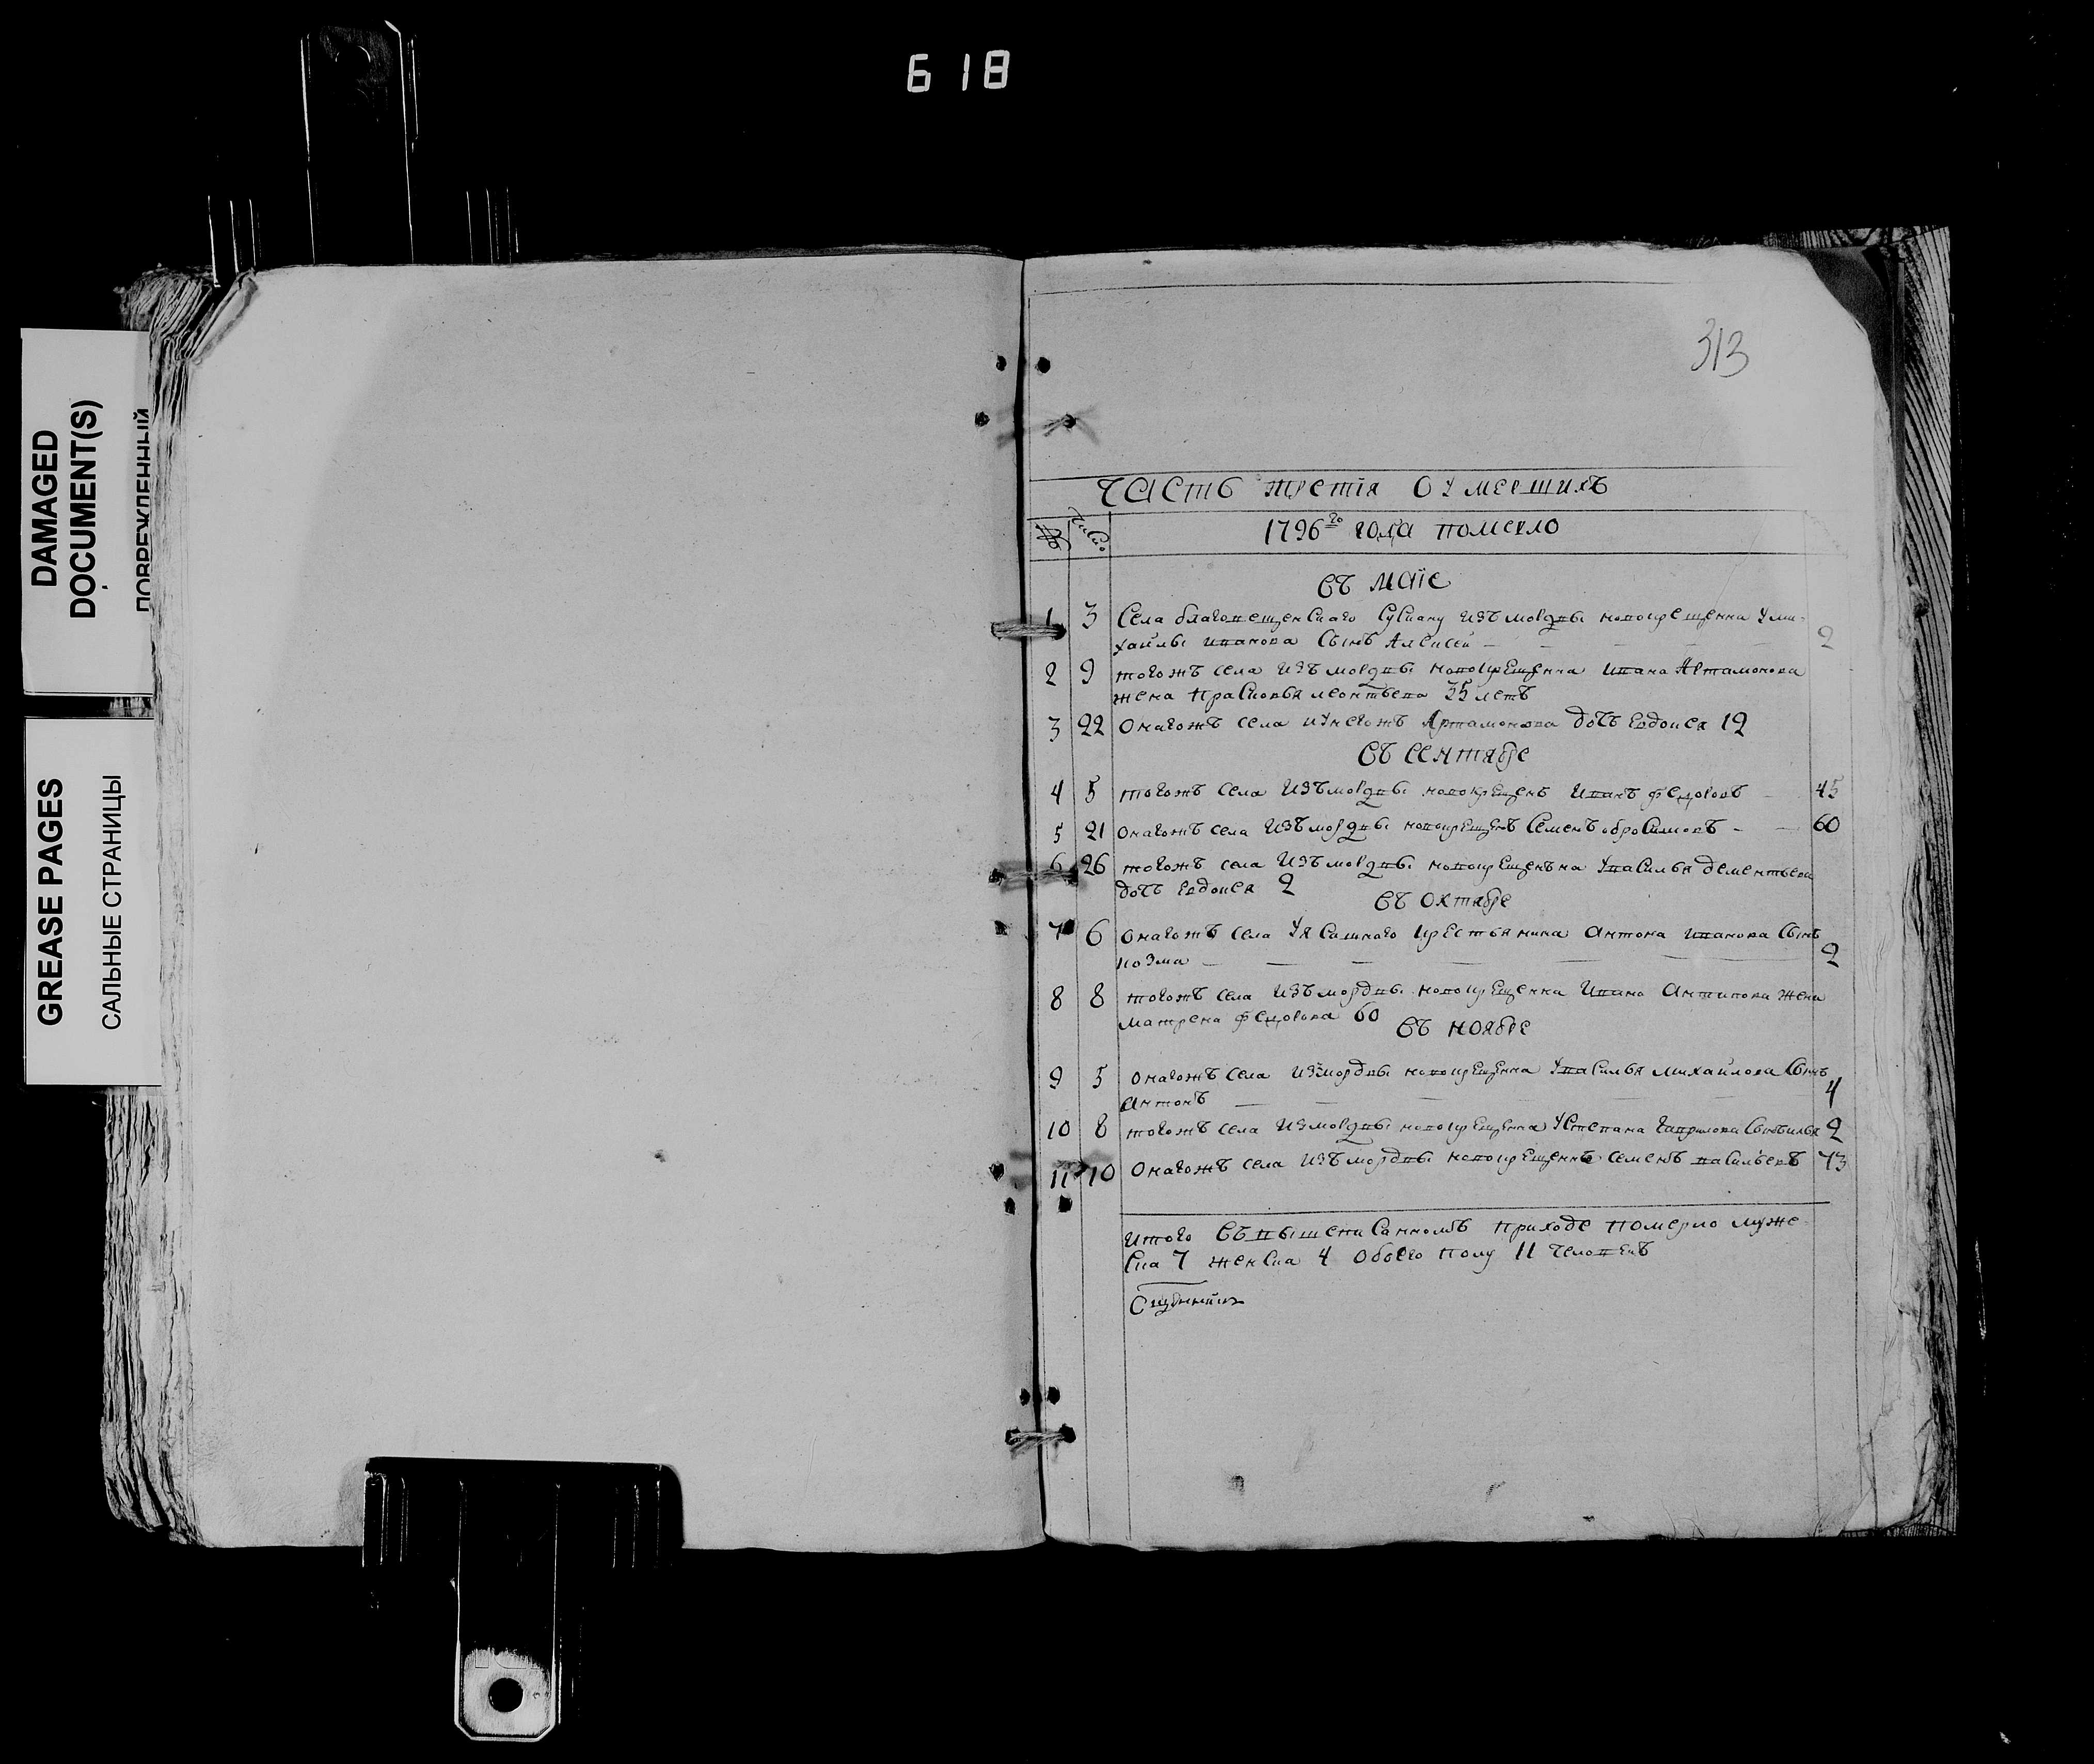 618
DAMAGED
DOCUMENT(S)
ПОВРЕЖДЕННЫЙ
GREASE PAGES
САЛЬНЫЕ СТРАНИЦЫ
313
Часть третїя оумершихъ
№ число 1796го года померло
въ маїе
1 3 Села благовещенскаго изъ мордвы новокрещенна у ми-
хайлы иванова сынъ Алексей 2
2 9 тогожъ села изъ мордвы новокрещенна ивана Артамонова
жена прасковья леонтьева 35 летъ
3 22 Онагожъ села и у негожъ Артамонова дочь евдокея 12
въ сентябре
4 5 тогожъ села изъ мордвы новокрещенъ иванъ федоровъ 45
5 21 онагожъ села изъ мордвы новокрещенъ Семенъ 60
6 26 тогожъ села изъ мордвы новокрещенъна у василья дементьева
дочь евдокея 2
въ октябре
7 6 онагожъ села у ясашнаго крестьянина антона иванова сынъ
козма 2
8 8 тогожъ села изъ мордвы новокрещенна ивана антипова жена
матрена федорова 60
въ ноябре
9 5 онагожъ села измордвы новокрещенна у василья михайлова сынъ
антонъ 4
10 8 тогожъ села измордвы новокрещенна у степана гаврилова сынъ 2
11 10 Онагожъ села изъ мордвы новокрещеннъ семенъ васильевъ 73
итого въ вышеписанномъ приходе померло муже-
ска 7 женска 4 обоего полу 11 человекъ